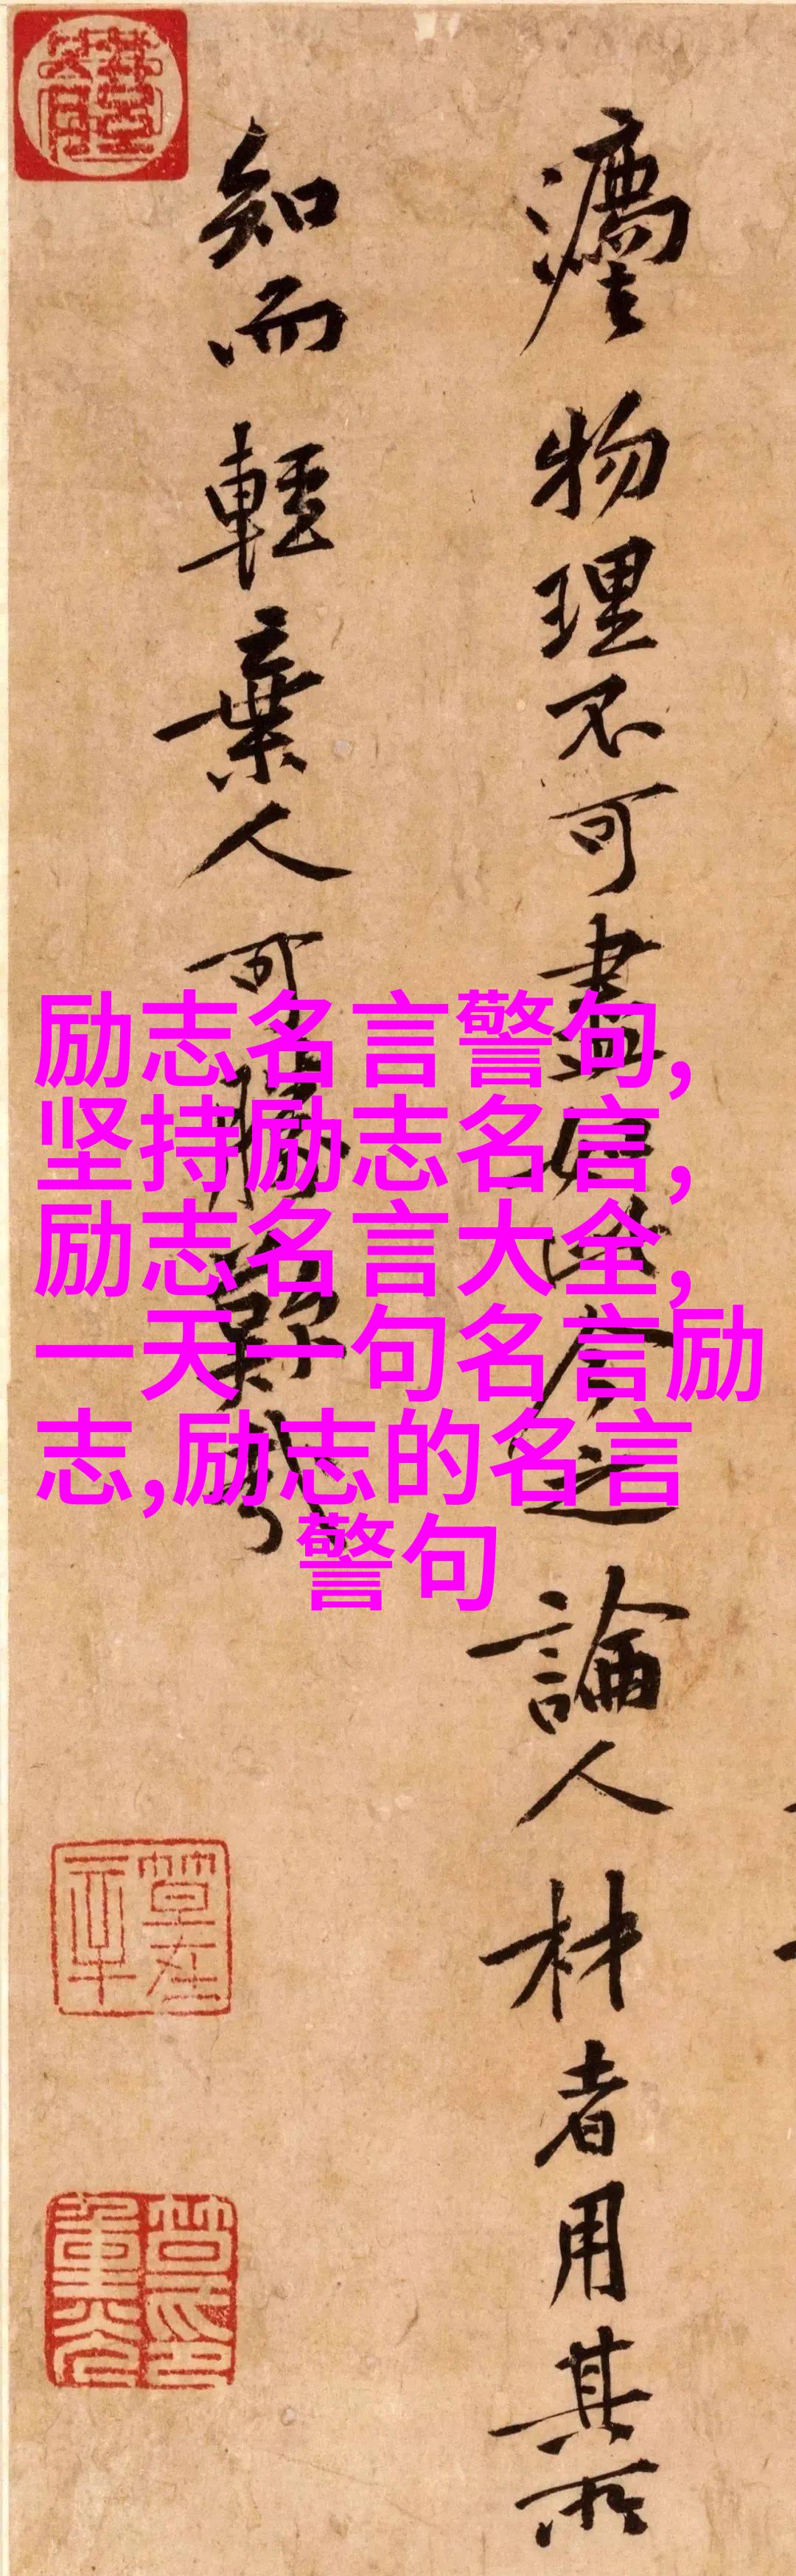 物理不可盡如此今之論人材者用其所
知而輕棄人可勝歎哉
励志名言警句,
坚持励志名言,
励志名言大全,
一天一句名言励
志,励志的名言
警句